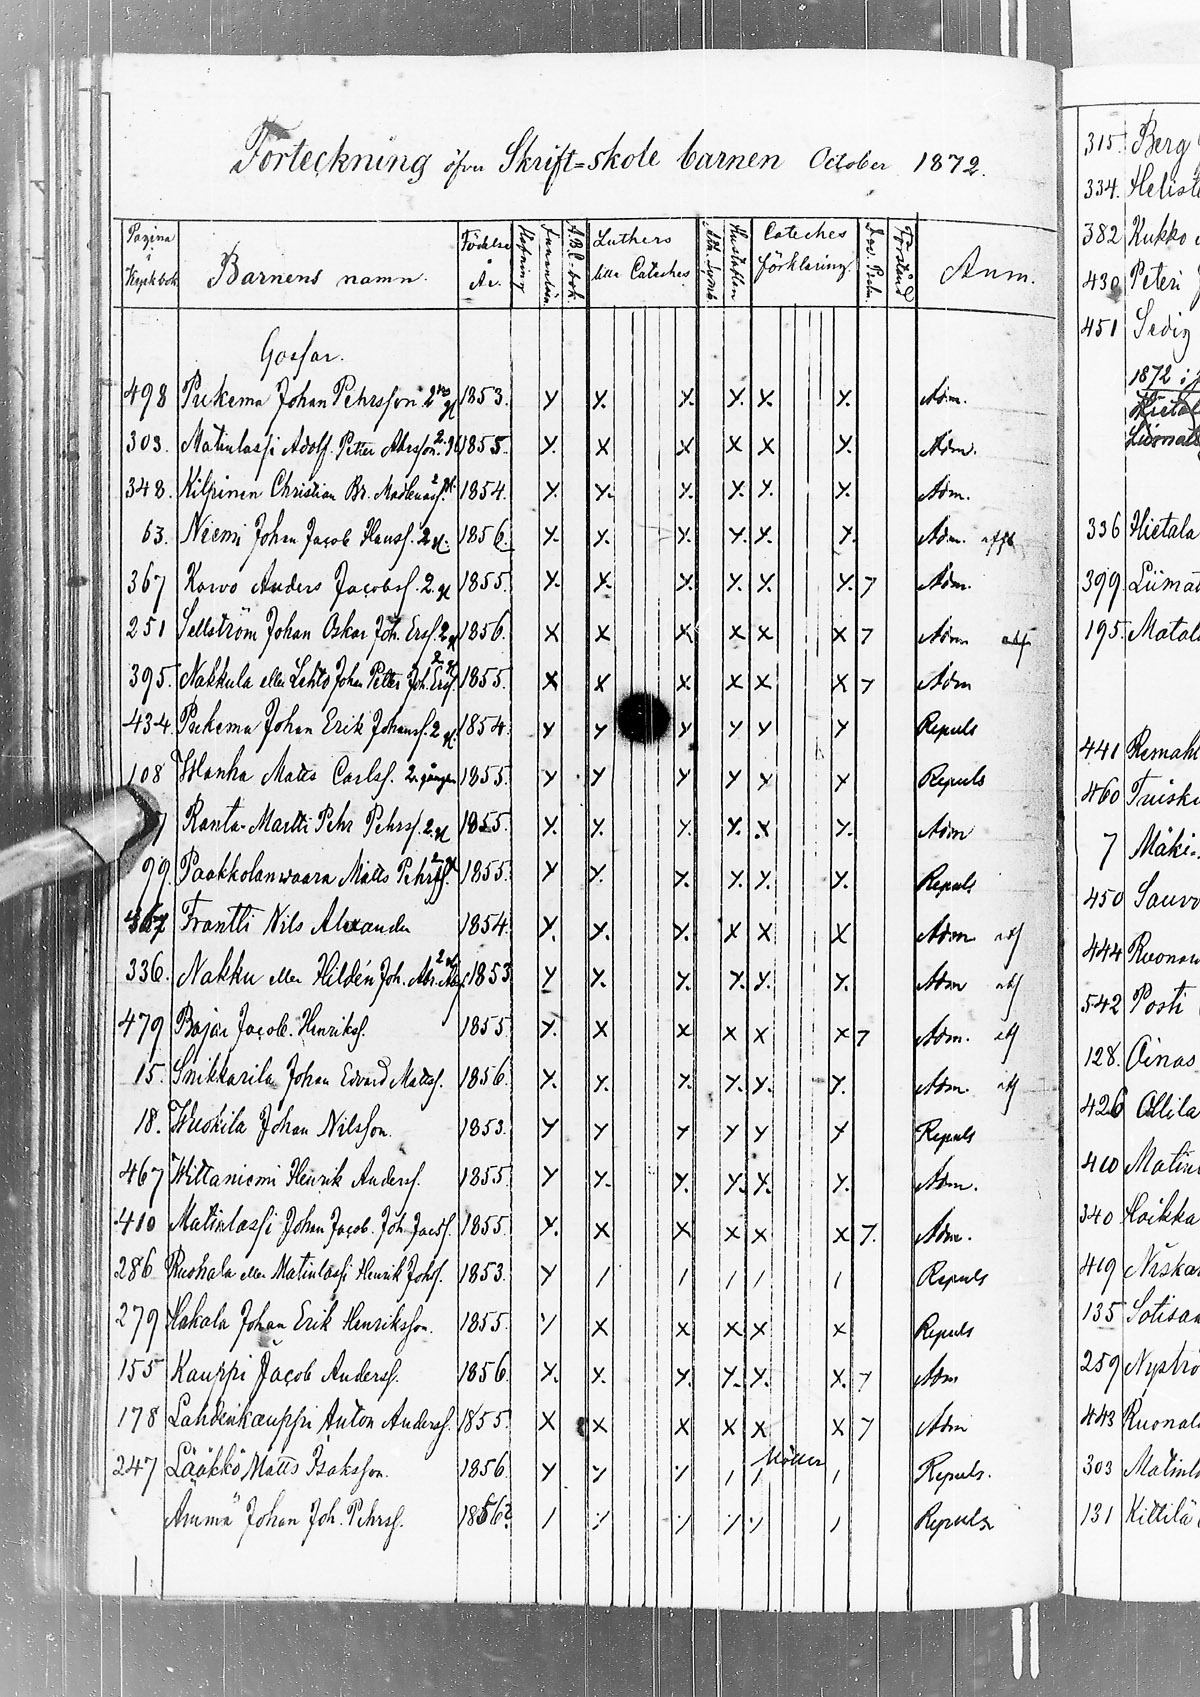 Förteckning öfver Skrift=skole barnen October 1872.
Pagina i Kyrk bok Barnens namn. Födelse År. A.B.C. bok Luthers Lilla Cateches Ath. Symb. Hustaflan Cateches förklaring Dav. Psalm. Förstånd Anm.
Gossar.
498 Pukema Johan Pehrsson 2 1853. Y X. X. X. X. X. Adm.
303. Matinlassi Adolf Petter Abrsson. 2. 1855. Y. X X X X X. Adm.
348. Kilpinen Christian Br. 2 1854. Y. Y. X. X. Y. X. Adm.
63. Niemi Johan Jacob Hanss. 2 g. 1856. Y. Y. X. Y. X. Y. Adm.
367 Korvo Anders Jacobss. 2. g 1855. Y. X. X. X. X X. 7 Adm.
251 Sellström Johan Oskar Joh. Erss. 2 g 1856. X X X X X X 7 Adm
395. Nakkula eller Lehto Johan Petter Joh. Erss. 2 g 1855. X X X X X X 7 Adm
434. Pukema Johan Erik Johanss. 2 g. 1854. Y Y Y Y Y Y Repuls
108 Wanha Matts Carlss. 2 gången 1855. Y Y Y Y Y Y Repuls
7 Ranta-Martti Pehr Pehrss. 2. g 1855. Y. Y. Y. Y. X Y. Adm
99. Paakkolanwaara Matts Pehrss. 2 g 1855. Y Y. Y. Y. Y. Y. Repuls
367 Frantti Nils Alexander 1854. Y. Y. Y. X X X Adm
336. Nakku eller Hildén Joh. Abr. 2 g 1853 Y Y. Y. Y. Y. Y. Adm
479 Bajar Jacob. Henrikss. 1855 Y. X X X X X 7 Adm.
15. Snikkarila Johan Edvard Mattss. 1856. Y. Y. Y. Y. Y. Y. Adm.
18. Wuokila Johan Nilsson. 1853. Y Y Y Y Y Y Repuls
467 Wittaniemi Henrik Anderss. 1855. Y Y. Y. Y. Y. Y. Adm.
410 Matinlassi Johan Jacob. Joh. Jacss. 1855. Y. X X X X X 7. Adm.
286 Ruokala eller Matinlassi Henrik Johss. 1853. Y / / / / / Repuls
279 Hakala Johan Erik Henriksson. 1855. Y X X X X X Repuls
155 Kauppi Jacob Anderss. 1856. Y. X. Y. Y. Y. X. 7 Adm
178 Lahdenkauppi Anton Anderss. 1855. X X X X X X 7 Adm
247 Lääkkö Matts Isaksson. 1856. Y Y Y / / / Repuls.
Ämmä Johan Joh. Pehrss. 1856? / / / / / / Repuls
315. Berg
334. Helist
382 Kukko
430 Peteri
451
1872
336 Hietala
399.
195. Matal
441
460
7 Mäki
450 Sauvo
444
542 Posti
128. Oinas
426 Ollila
410 Matin
340
419 Niska
135
259 Nyströ
443 Ruonal
303 Matinl
131 Kittilä